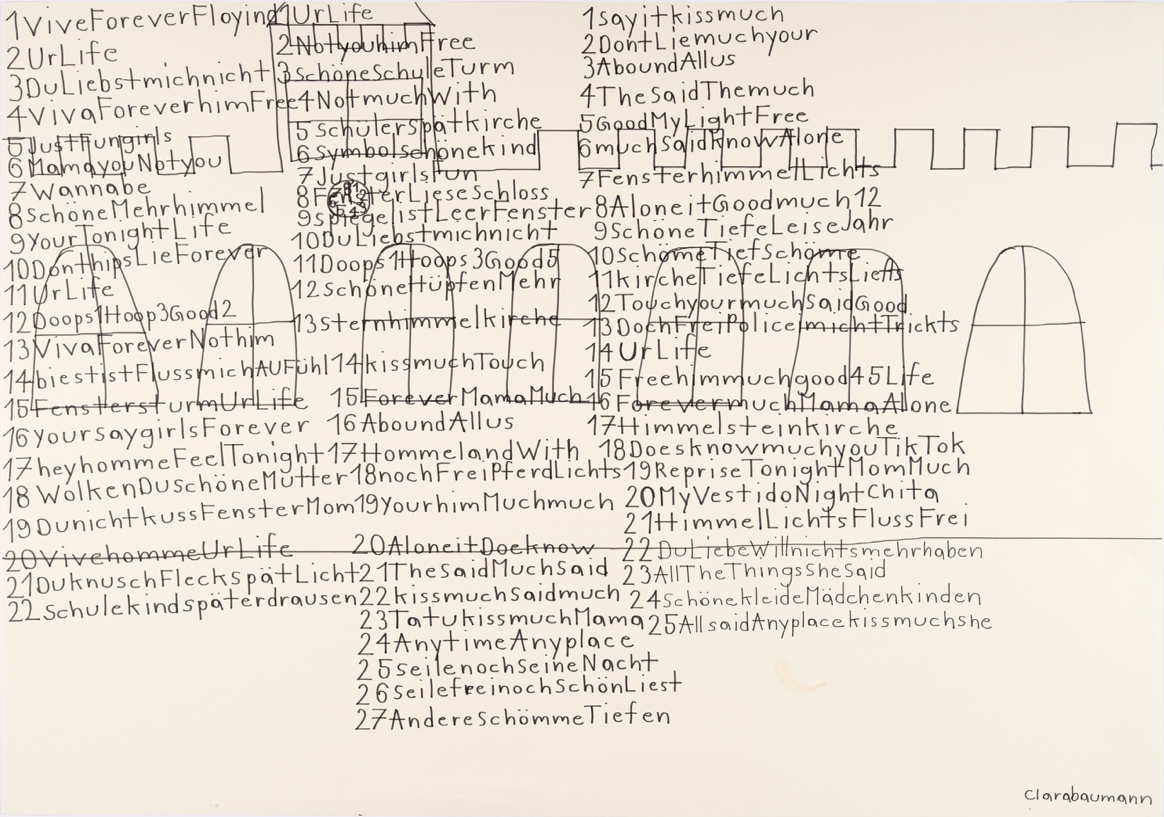 1ViveForeverFloying
2UrLife
3DuLiebstmichnicht
4VivaForeverhimFree
5JustFungirls
6MamayouNotyou
7Wannabe
8SchöneMehrhimmel
9YourTonightLife
10DonthipsLieForever
11UrLife
12Doops1Hoop3Good2
13VivaForeverNothim
14biestistFlussmichAUFühl
15FenstersturmUrLife
16YoursaygirlsForever
17heyhommeFeelTonight
18WolkenDuschöneMutter
19DunichtkussFensterMom
20VivehommeUrLife
21DuknuschFleckspätLicht
22Schulekindspäterdrausen
1UrLife
2NotyouhimFree
3SchöneSchuleTurm
4NotmuchWith
5Schülerspätkirche
6Symbolschönekind
7Justgirlsfun
8FensterLieseSchloss
9SpiegelistLeerFenster
10DuLiebstmichnicht
11Doops1Hoops3Good5
12SchöneHüpfenMehr
13Sternhimmelkirche
14kissmuchTouch
15ForeverMamaMuch
16AboundAllus
17HommelandWith
18nochFreiPferdLichts
19YourhimMuchmuch
20AloneitDoeknow
21TheSaidMuchSaid
22kissmuchSaidmuch
23TatukissmuchMama
24AnytimeAnyplace
25SeilenochSeineNacht
26SeilefreinochSchönLiest
27AndereSchömmeTiefen
1Sayitkissmuch
2DontLiemuchyour
3AboundAllus
4TheSaidThemuch
5GoodMyLightFree
6muchSaidKnowAlone
7FensterhimmelLichts
8AloneitGoodmuch12
9SchöneTiefeLeiseJahr
10SchömeTiefSchömre
11kircheTiefeLichts
12TouchyourmuchSaidGood
13DochFreiPolicemichtTrickts
14UrLife
15Freehimmuchgood45Life
16ForevermuchMamaAlone
17Himmelsteinkirche
18DoesknowmuchyouTikTok
19RepriseTonightMomMuch
20MyVestidoNightChita
21HimmelLichtsFlussFrei
22DuLiebeWillnichtsmehrhaben
23AllTheThingsSheSaid
24SchönekleideMädchenkinden
25AllsaidAnyplacekissmuchshe
Clarabaumann